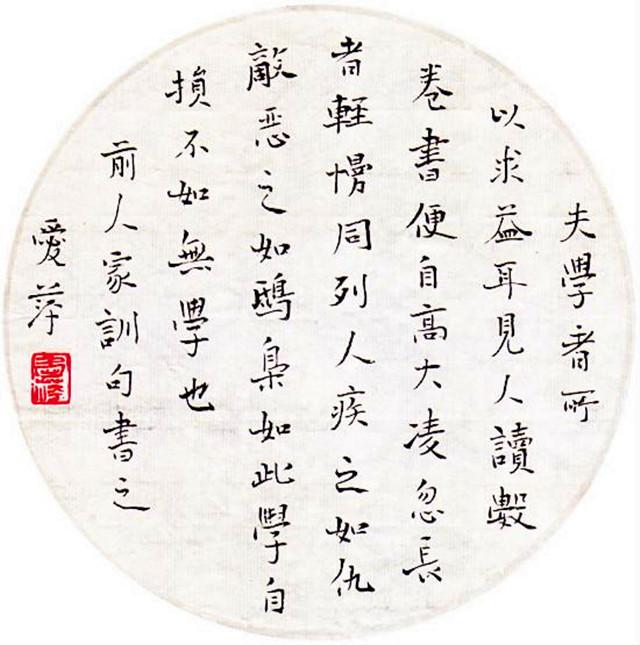 夫學者所
以求益耳見人讀數
卷書便自高大凌忽長
者輕慢同列人疾之如仇
敵惡之如鴟梟如此學自
損不如無學也
前人家訓句書之
愛萍